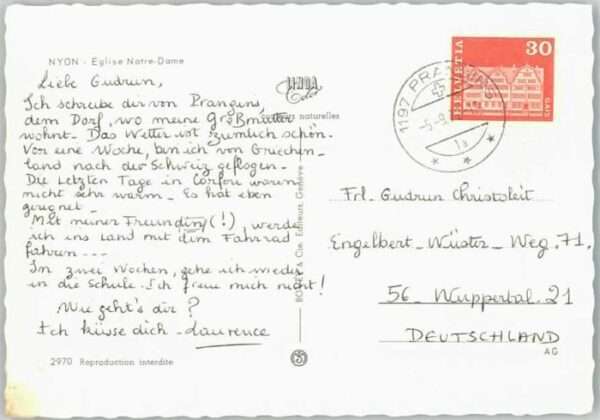 NYON - Eglise Notre-Dame
Liebe Gudrun,
Ich schreibe dir von Prangins,
dem Dorf, wo meine Großmutter
wohnt. Das Wetter ist zümlich schön.
Vor eine Woche, bin ich von Griechen-
land nach der Schweiz geflogen.
Die Letzten Tage in Corfou waren
nicht sehr warm. Es hat eben
geregnet.
Mit meiner Freundin (!), werde
ich ins Land mit dem Fahrrad
fahren ---
In zwei Wochen, gehe ich wieder
in die Schule. Ich freue mich nicht!
Wie geht's dir?
Ich küsse dich - Laurence
2970 Reproduction interdite
Color
naturelles
& Cie, Editeurs, Genève
1197 PRANGINS
-5.-9.
1a
HELVETIA
30
GAIS
Frl. Gudrun Christoleit
Engelbert-Wüster-Weg. 71.
56_ Wuppertal. 21
DEUTSCHLAND
AG